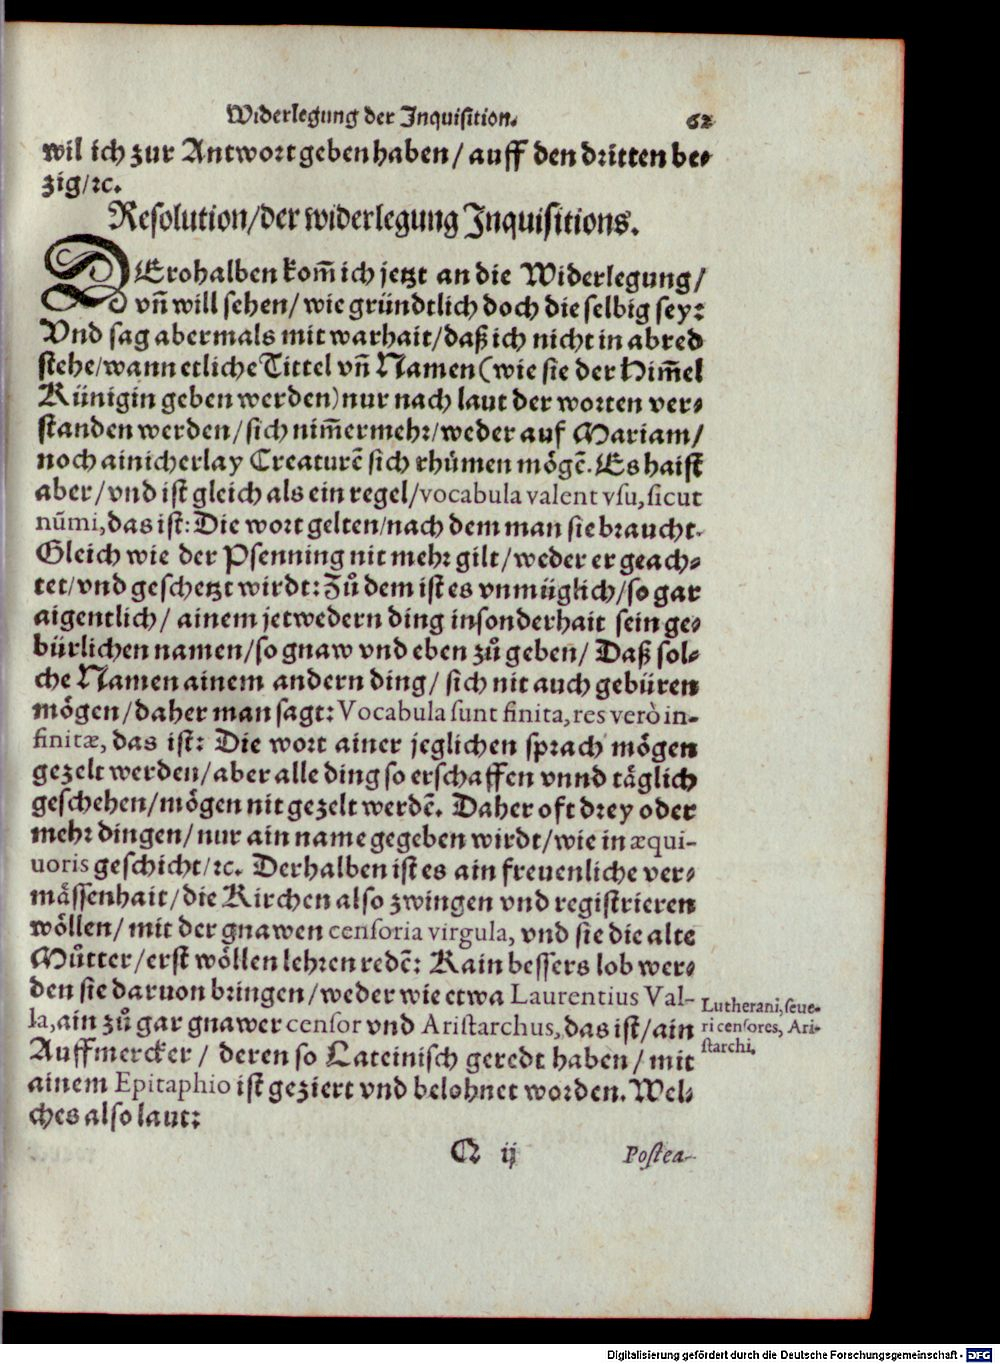 Widerlegung der Inquisition. 62
wil ich zur Antwort geben haben / auff den dritten be⸗
zig / ꝛc.
Resolution / der widerlegung Inquisitions.
DErohalben kom̃ ich jetzt an die Widerlegung /
vñ will sehen / wie gründtlich doch die selbig sey:
Vnd sag abermals mit warhait / daß ich nicht in abred
stehe / wann etliche Tittel vñ Namen (wie sie der Him̃el
Künigin geben werden) nur nach laut der worten ver⸗
standen werden / sich nim̃ermehr / weder auf Mariam /
noch ainicherlay Creaturẽ sich rhůmen mögẽ. Es haist
aber / vnd ist gleich als ein regel / vocabula valent vsu, sicut
nũmi, das ist: Die wort gelten / nach dem man sie braucht.
Gleich wie der Pfenning nit mehr gilt / weder er geach⸗
tet / vnd geschetzt wirdt: Zů dem ist es vnmüglich / so gar
aigentlich / ainem jetwedern ding insonderhait sein ge⸗
bürlichen namen / so gnaw vnd eben zů geben / Daß sol⸗
che Namen ainem andern ding / sich nit auch gebüren
mögen / daher man sagt: Vocabula sunt finita, res verò in-
finitæ, das ist: Die wort ainer jeglichen sprach mögen
gezelt werden / aber alle ding so erschaffen vnnd täglich
geschehen / mögen nit gezelt werdẽ. Daher oft drey oder
mehr dingen / nur ain name gegeben wirdt / wie in æqui-
uoris geschicht / ꝛc. Derhalben ist es ain freuenliche ver⸗
mässenhait / die Kirchen also zwingen vnd registrieren
wöllen / mit der gnawen censoria virgula, vnd sie die alte
Můtter / erst wöllen lehren redẽ: Kain bessers lob wer⸗
den sie daruon bringen / weder wie etwa Laurentius Val-
la, ain zů gar gnawer censor vnd Aristarchus, das ist / ain
Auffmercker / deren so Lateinisch geredt haben / mit
ainem Epitaphio ist geziert vnd belohnet worden. Wel⸗
ches also laut:
Lutherani, seue-
ri censores, Ari-
starchi.
Q ij Postea
Digitalisierung gefördert durch die Deutsche Forschungsgemeinschaft - DFG